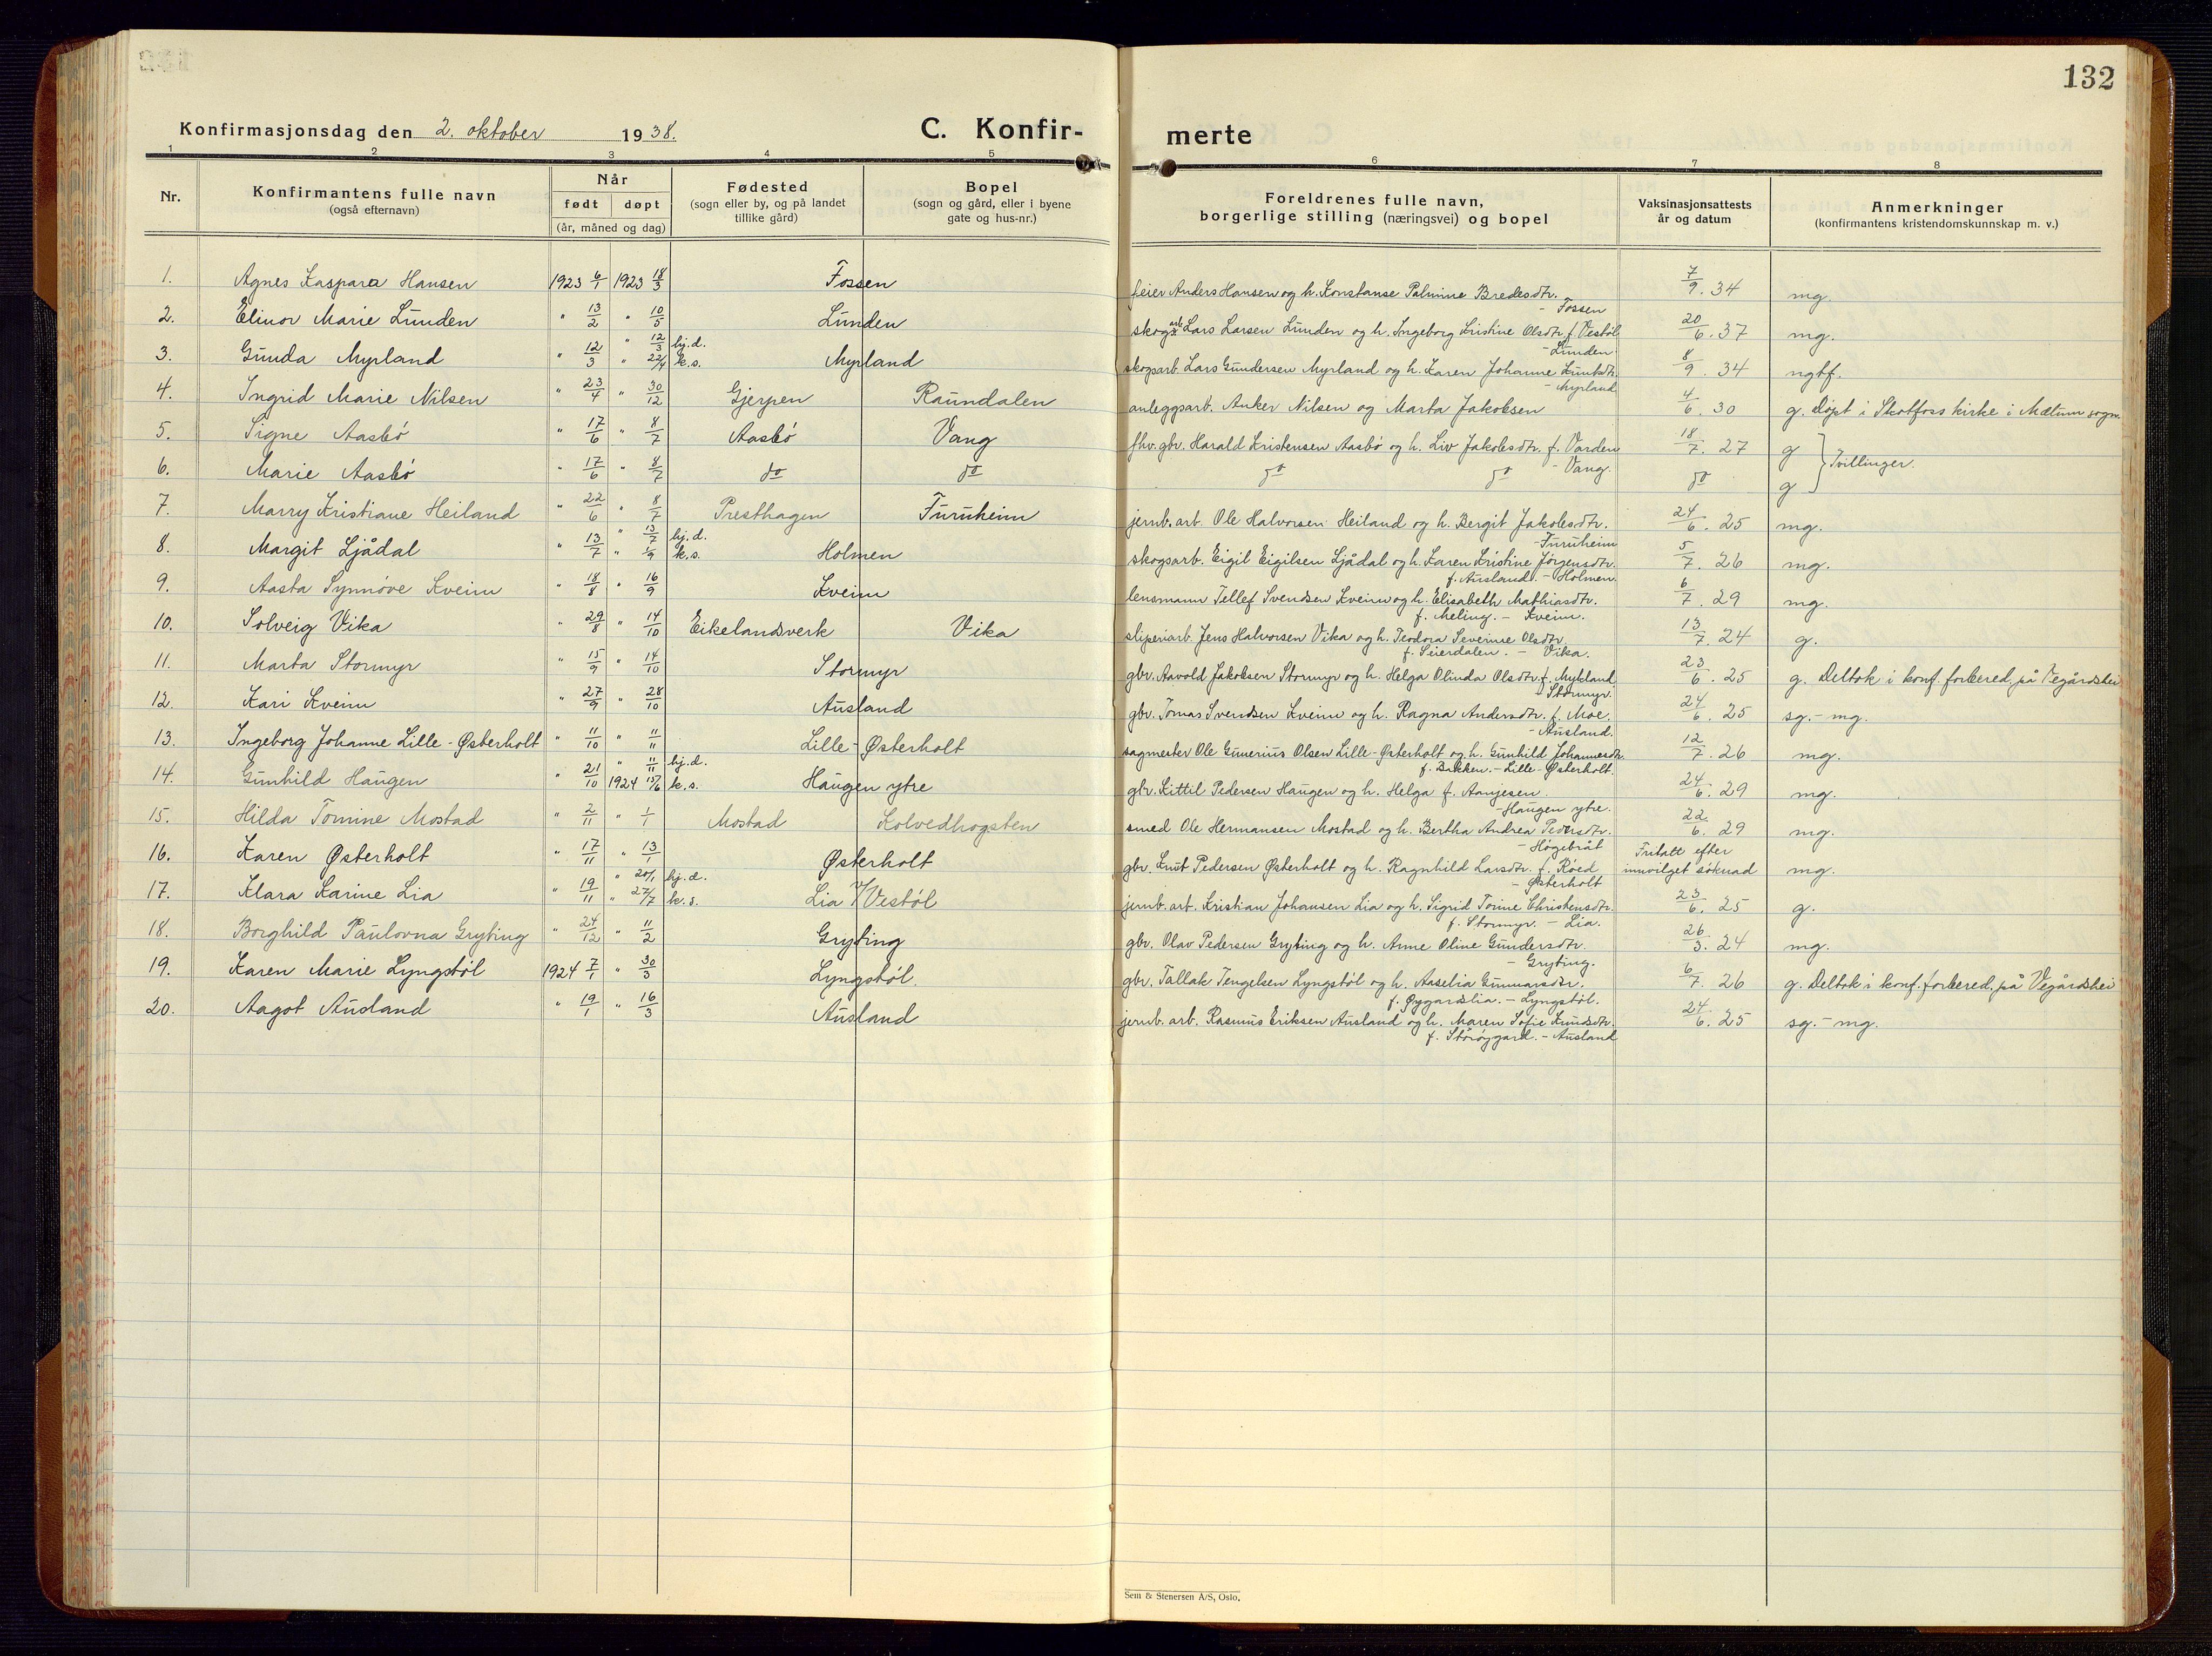 132
Konfirmasjonsdag den 2. oktober 1938.
C. Konfir- merte
1 2 3 4 5 6 7 8
Nr.
Konfirmantens fulle navn
(også efternavn)
Når
født døpt
(år, måned og dag)
Fødested
(sogn eller by, og på landet
tillike gård)
Bopel
(sogn og gård, eller i byene
gate og hus-nr.)
Foreldrenes fulle navn,
borgerlige stilling (næringsvei) og bopel
Vaksinasjonsattests
år og datum
Anmerkninger
(konfirmantens kristendomskunnskap m. v.)
1. Agnes Kaspara Hansen 1923 6/1 1923 18/3 Fossen feier Anders Hansen og h. Konstanse Palmine Bredesdtr. 7/9. 34 mg.
- Fossen
2. Elinor Marie Lunden " 13/2 " 10/5 Lunden skogsarb. Lars Larsen Lunden og h. Ingeborg Kristine Olsdtr. f. Vestøl 20/6. 37 mg.
- Lunden
3. Gunda Myrland " 12/3 " 12/3 hj.d. " 22/4 k.s. Myrland skogsarb. Lars Gundersen Myrland og h. Karen Johanne Knutsdtr. 8/9. 34 ngtf.
- Myrland
4. Ingrid Marie Nilsen " 23/4 " 30/12 Gjerpen Raundalen anleggsarb. Anker Nilsen og Marta Jakobsen 4/6. 30 g. døpt i Skotfoss kirke i Mælum sogn.
5. Signe Aasbö " 17/6 " 8/7 Aasbö Vang fhv. gbr. Harald Kristensen Aasbö og h. Liv Jakobsdtr. f. Varden 18/7. 27 g
- Vang.
6. Marie Aasbö " 17/6 " 8/7 do do do do do g } Tvillinger.
7. Marry Kristiane Heiland " 22/6 " 8/7 Presthagen Furuheim jernb. arb. Ole Halvorsen Heiland og h. Bergit Jakobsdtr. 24/6. 25 mg.
- Furuheim
8. Margit Ljådal " 13/7 " 13/7 hj.d. " 1/9 k.s. Holmen skogsarb. Eigil Eigilsen Ljådal og h. Karen Kristine Jörgensdtr. 5/7. 26 mg.
f. Ausland. - Holmen.
9. Aasta Synnöve Kveim " 18/8 " 16/9 Kveim lensmann Tellef Svendsen Kveim og h. Elisabeth Mathiasdtr. 6/7. 29 mg.
f. Meling. - Kveim.
10. Solveig Vika " 29/8 " 14/10 Eikelandsverk Vika sliperiarb. Jens Halvorsen Vika og h. Teodora Severine Olsdtr. 13/7. 24 g.
f. Seierdalen. - Vika.
11. Marta Stormyr " 15/9 " 14/10 Stormyr gbr. Aavold Jakobsen Stormyr og h. Helga Olinda Olsdtr. f. Mykland 23/6. 25 g. Deltok i konf. forbered. på Vegårdshei
- Stormyr.
12. Kari Kveim " 27/9 " 28/10 Ausland gbr. Tomas Svendsen Kveim og h. Ragna Andersdtr. f. Moe. 24/6. 25 sg. - mg.
- Ausland.
13. Ingeborg Johanne Lille-Østerholt " 11/10 " 11/11 Lille-Østerholt sagmester Ole Gunerius Olsen Lille-Østerholt og h. Gunhild Johannesdtr. 12/7. 26 mg.
f. Bakken. - Lille-Østerholt.
14. Gunhild Haugen " 21/10 " 11/11 hj.d. 1924 15/6 k.s. Haugen ytre gbr. Kittil Pedersen Haugen og h. Helga f. Aanjesen. 24/6. 29 mg.
- Haugen ytre.
15. Hilda Tomine Mostad " 2/11 " 1/1 Mostad Kolvedhogsten smed Ole Hermansen Mostad og h. Bertha Andrea Pedersdtr. 22/6. 29 mg.
- Högebråt
16. Karen Østerholt " 17/11 " 13/1 Østerholt gbr. Knut Pedersen Østerholt og h. Ragnhild Larsdtr. f. Röed Fritatt efter innvilget söknad mg.
- Østerholt
17. Klara Karine Lia " 19/11 " 20/1 hj.d. " 27/7 k.s. Lia v/Vestöl jernb. arb. Kristian Johansen Lia og h. Sigrid Torine Christensdtr. 23/6. 25 g.
f. Stormyr. - Lia.
18. Borghild Paulovna Gryting " 24/12 " 11/2 Gryting gbr. Olav Pedersen Gryting og h. Anne Oline Gundersdtr. 26/3. 24 mg.
- Gryting.
19. Karen Marie Lyngstöl 1924 7/1 " 30/3 Lyngstöl. gbr. Tallak Tengelsen Lyngstöl og h. Aaselia Gunnarsdtr. 6/7. 26 g. Deltok i konf. forbered. på Vegårdshei
f. Øygardslia. - Lyngstöl.
20. Aagot Ausland " 19/1 " 16/3 Ausland jernb. arb. Rasmus Eriksen Ausland og h. Maren Sofie Knudsdtr. 24/6. 25 sg. - mg.
- Ausland
Sem & Stenersen A/S, Oslo.